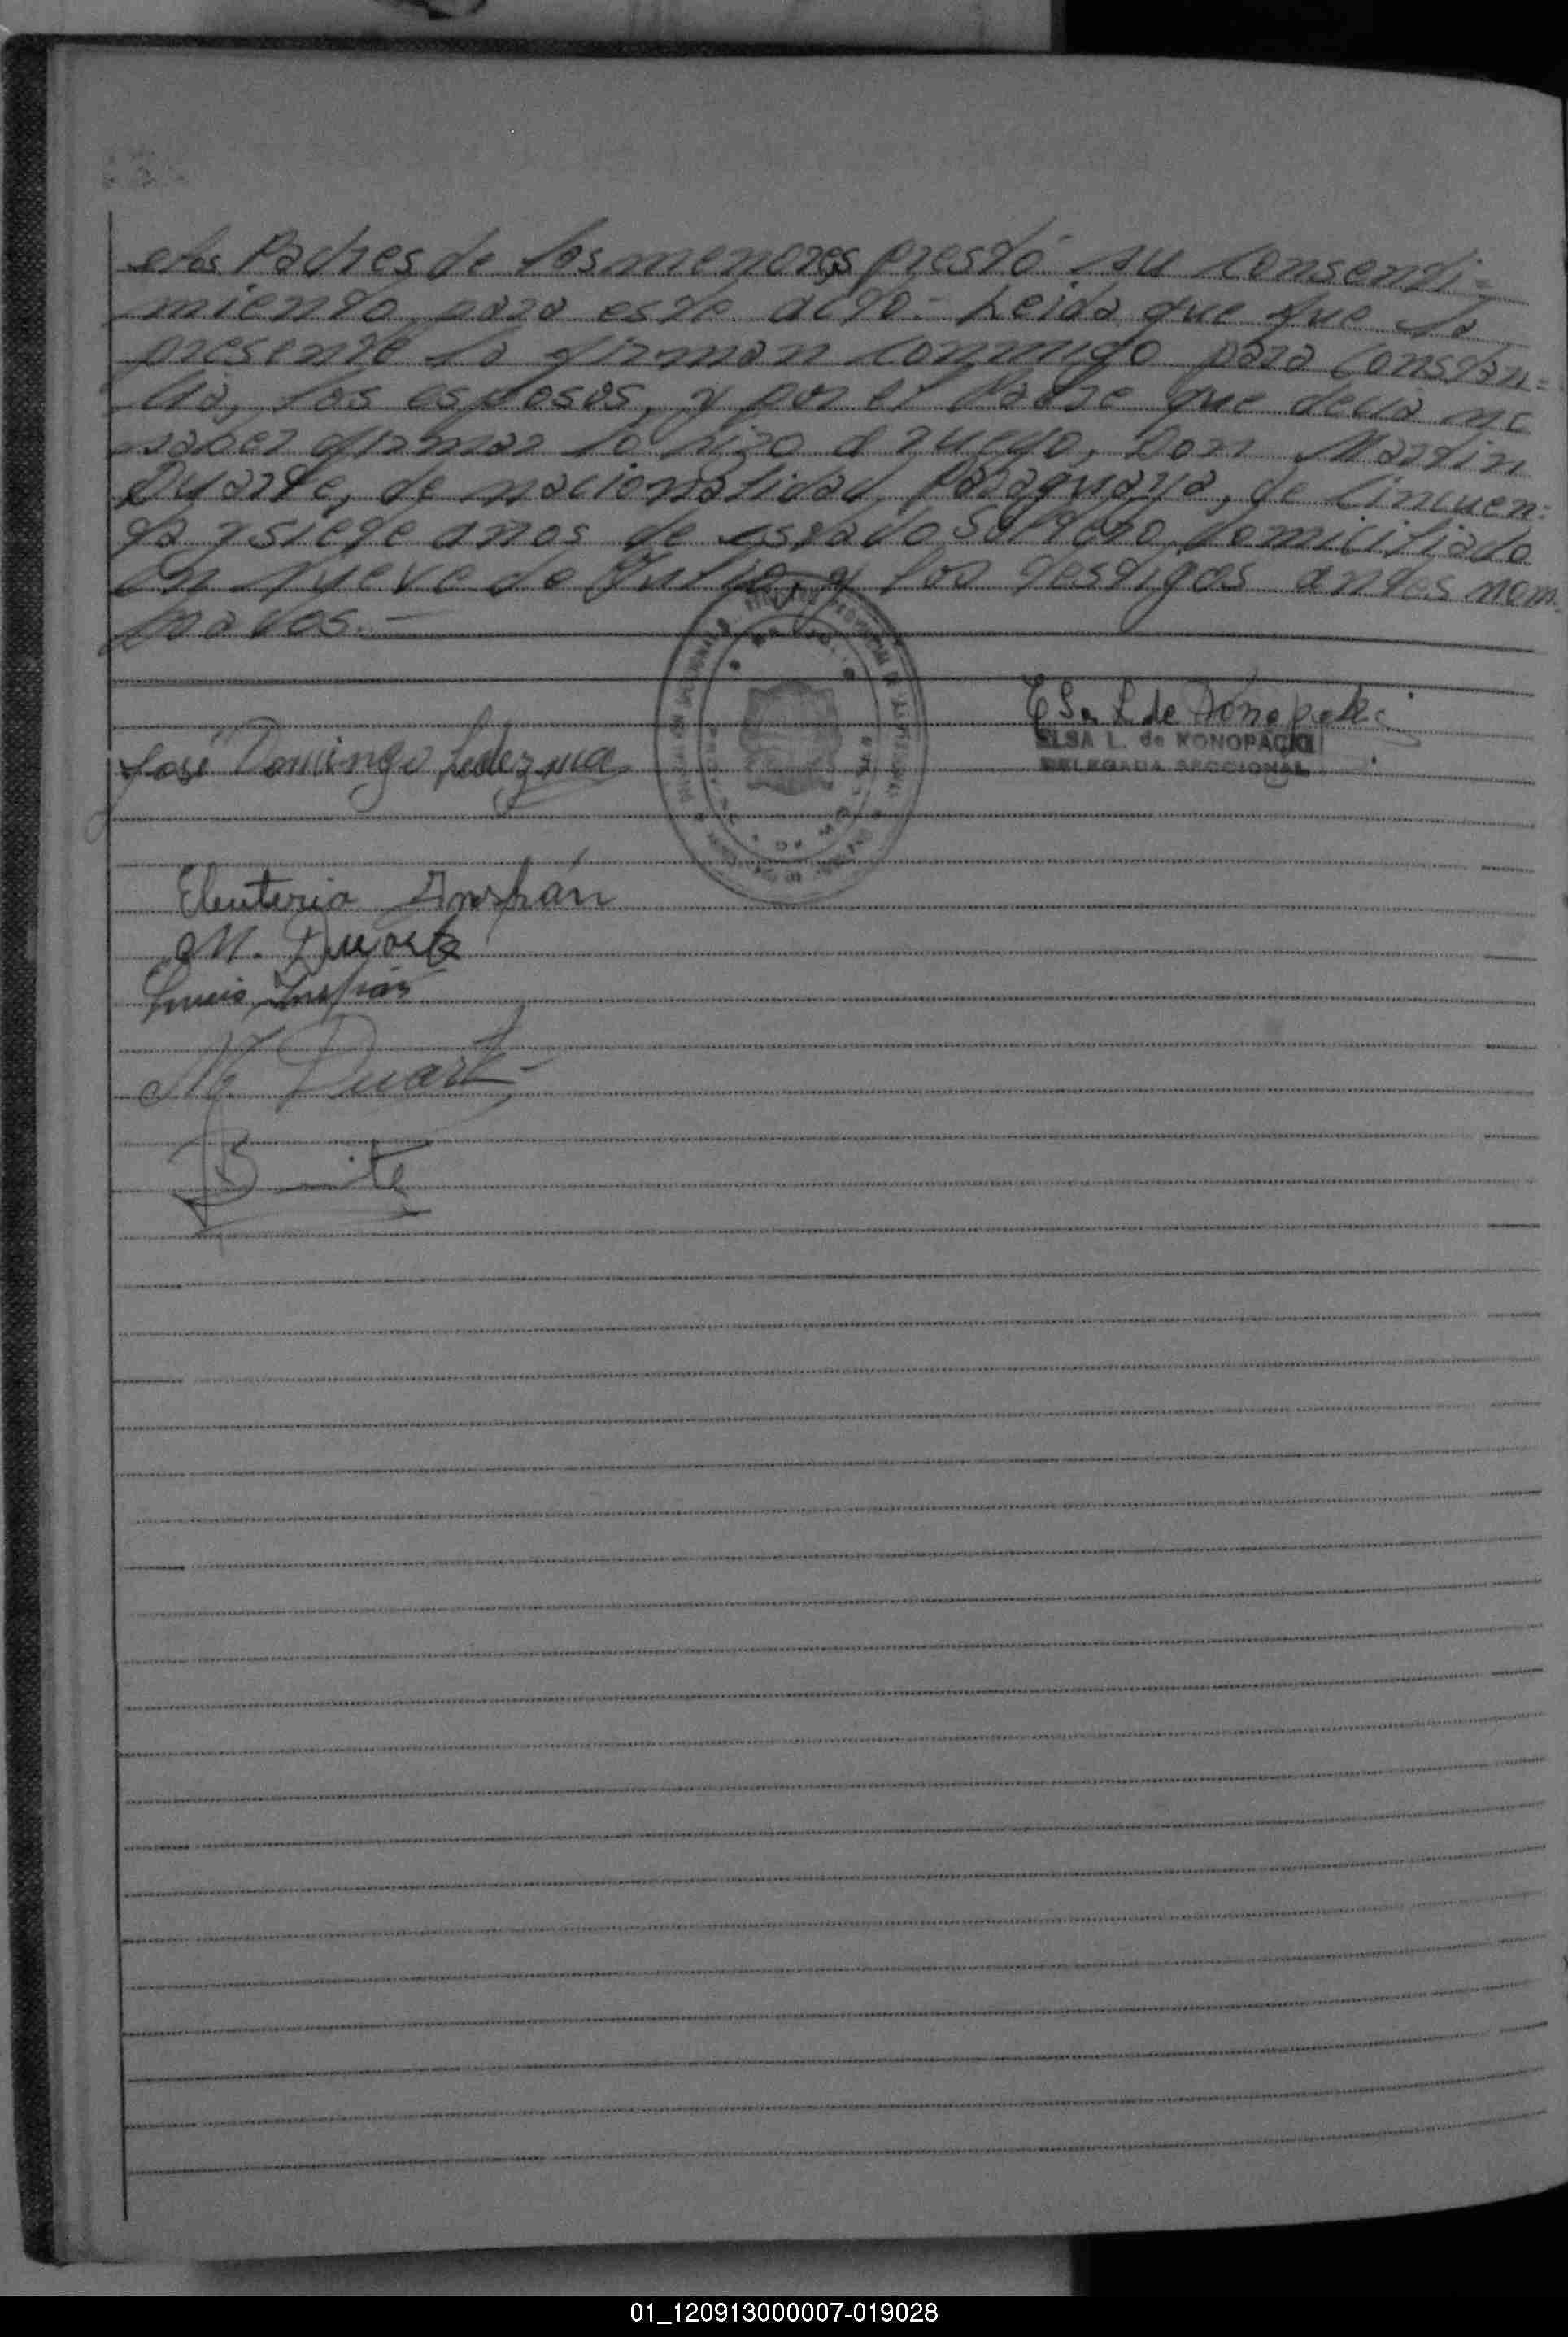 e los Padres de los menores, prestó su consenti=
miento para este acto.- Leída que fue la
presente la firman conmigo para constan=
cia, los esposos, y por el Padre que decía no
saber firmar lo hizo a ruego, Don Martín
Duarte, de nacionalidad, Paraguaya, de cincuen=
ta y siete años de estado Soltero, domiciliado
en Nueve de Julio, y los testigos antes nom
brados.-
Elsa L de Konopacki
ELSA L. de KONOPACKI
DELEGADA SECCIONAL
José Domingo Ledezma
Eleuteria Insfrán
M. Duarte
Insfrán
M. Duarte
01_120913000007-019028